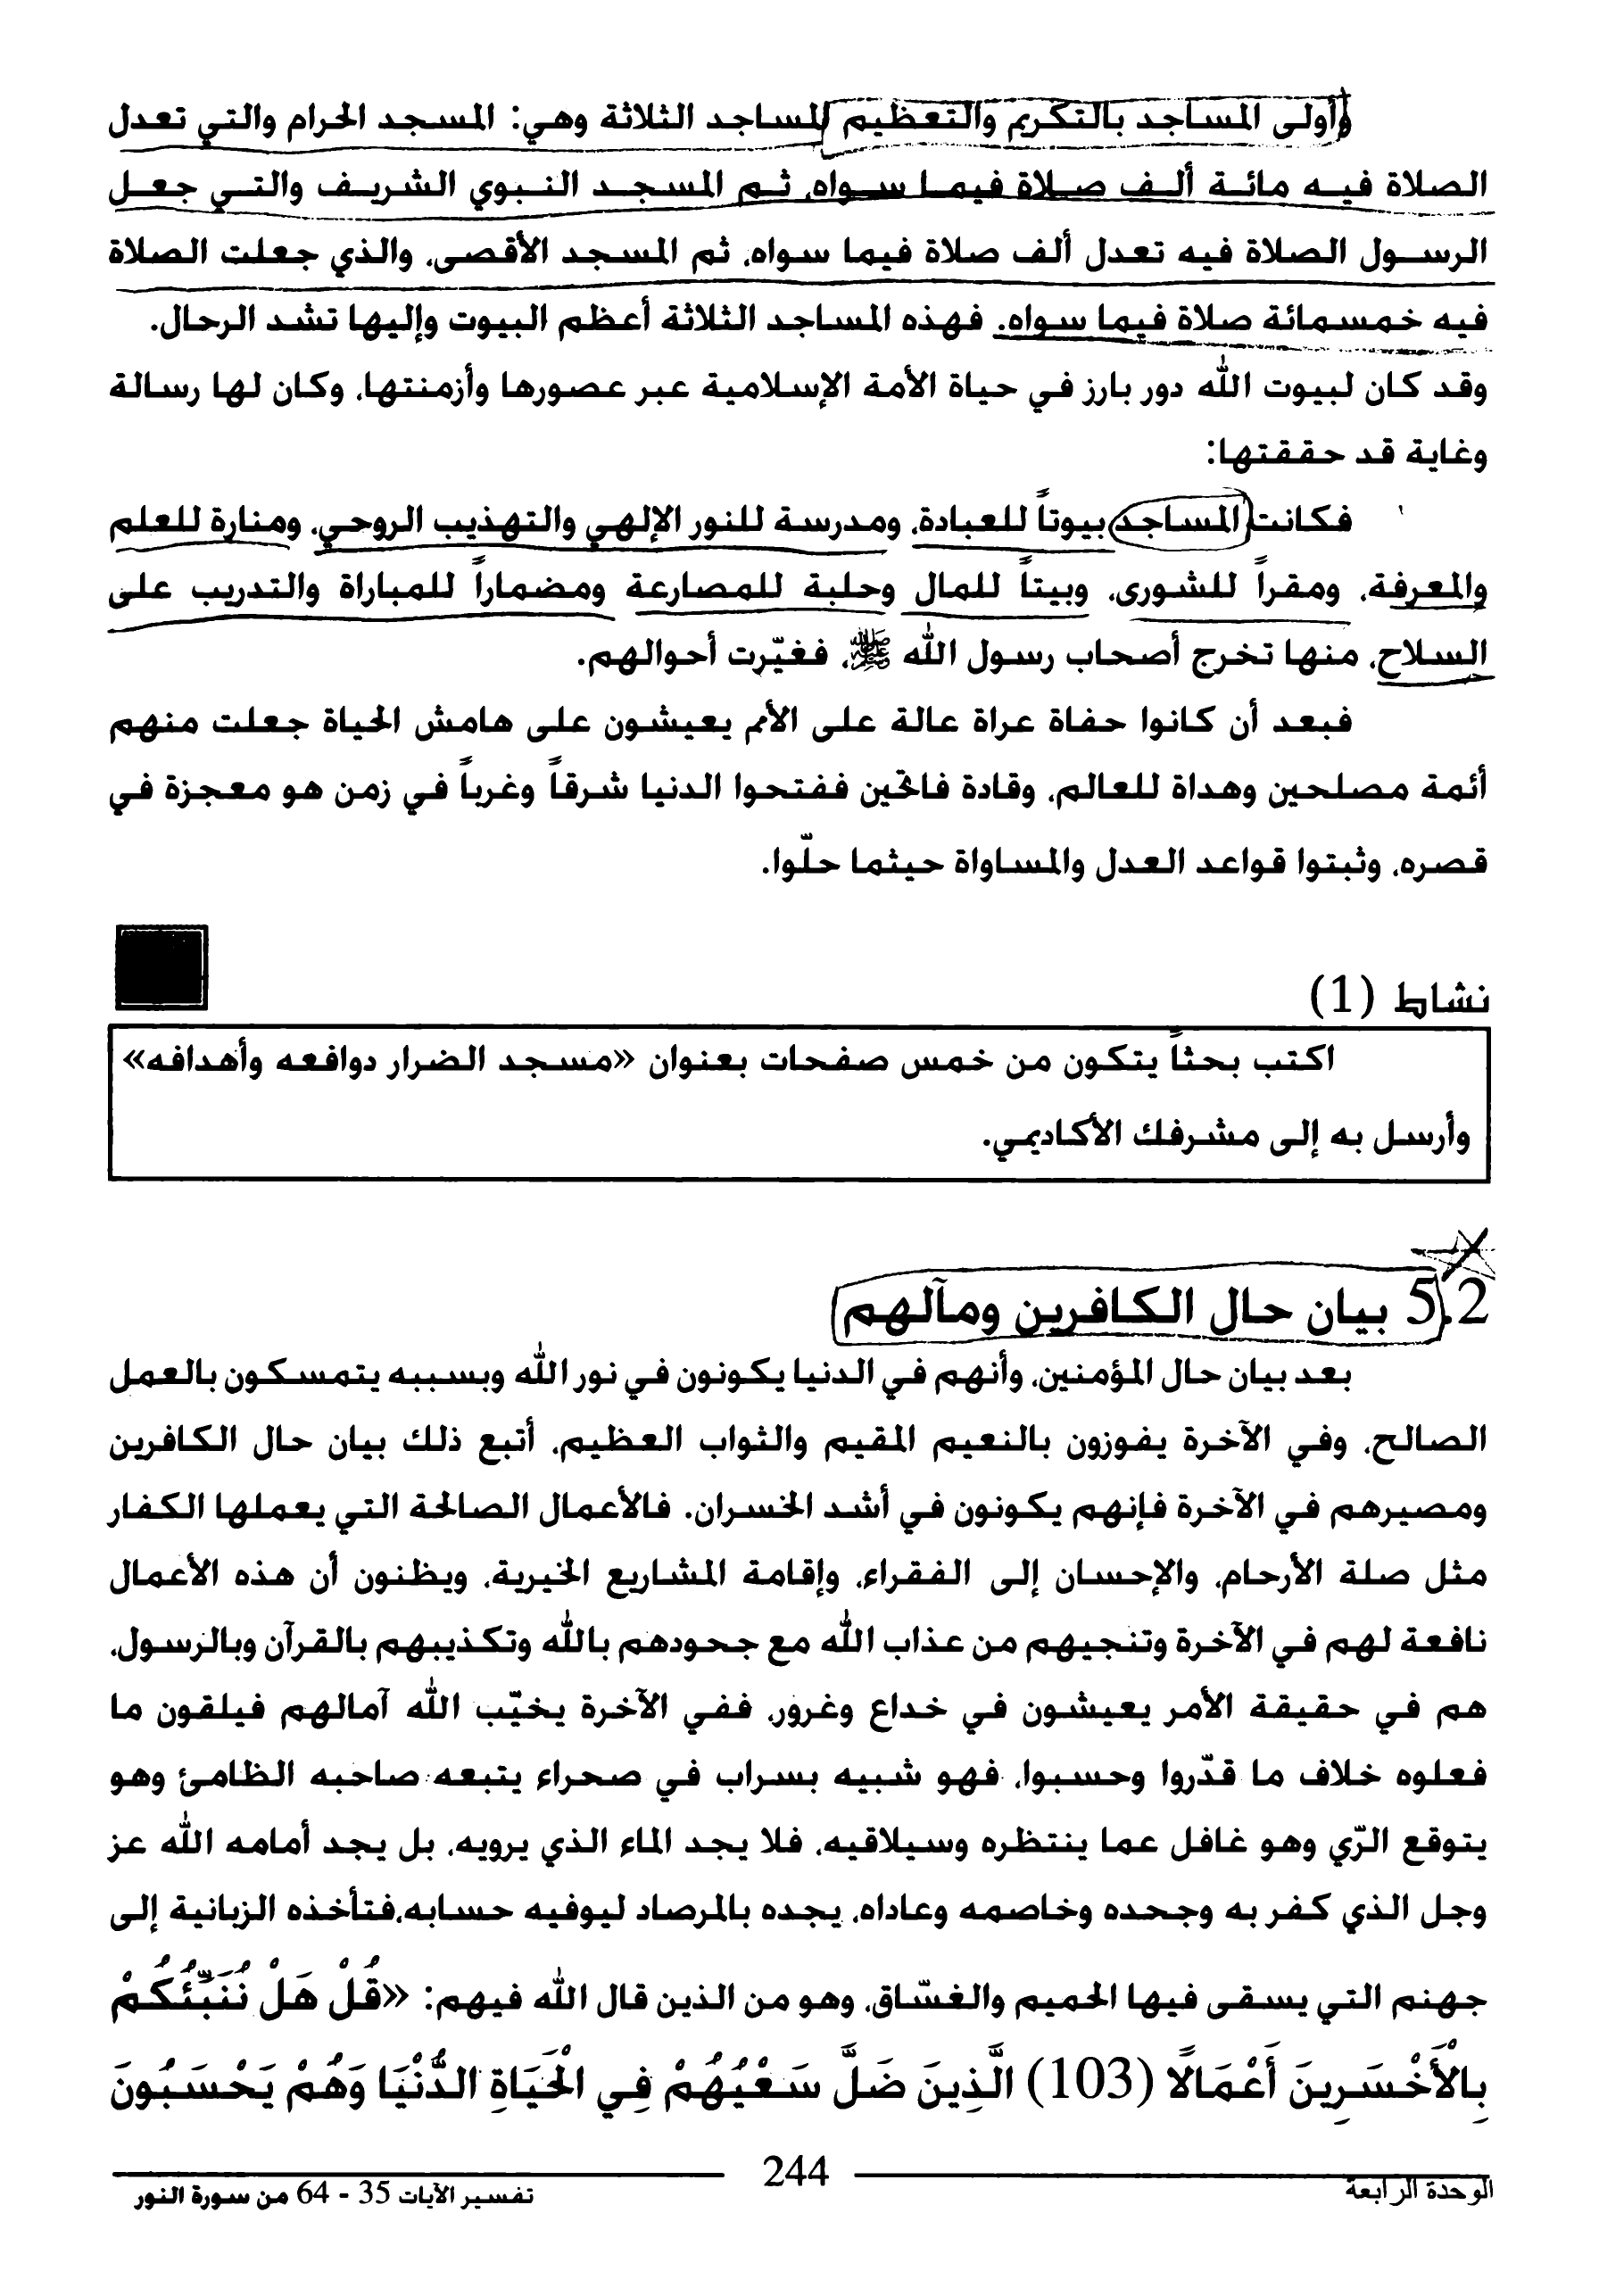 وأولى المساجد بالتكريم والتعظيم المساجد الثلاثة وهي: المسجد الحرام والتي تعدل
الصلاة فيه مائة ألف صلاة فيما سواه، ثم المسجد النبوي الشريف والتي جعل
الرسول الصلاة فيه تعدل ألف صلاة فيما سواه، ثم المسجد الأقصى، والذي جعلت الصلاة
فيه خمسمائة صلاة فيما سواه. فهذه المساجد الثلاثة أعظم البيوت وإليها تشد الرحال.
وقد كان لبيوت الله دور بارز في حياة الأمة الإسلامية عبر عصورها وأزمنتها، وكان لها رسالة
وغاية قد حققتها:
فكانت المساجد بيوتاً للعبادة، ومدرسة للنور الإلهي والتهذيب الروحي، ومنارة للعلم
والمعرفة، ومقراً للشورى، وبيتاً للمال وحلبة للمصارعة ومضماراً للمباراة والتدريب على
السلاح، منها تخرج أصحاب رسول الله ﷺ، فغيّرت أحوالهم.
فبعد أن كانوا حفاة عراة عالة على الأمم يعيشون على هامش الحياة جعلت منهم
أئمة مصلحين وهداة للعالم، وقادة فاتحين ففتحوا الدنيا شرقاً وغرباً في زمن هو معجزة في
قصره، وثبتوا قواعد العدل والمساواة حيثما حلّوا.
نشاط (1)
اكتب بحثاً يتكون من خمس صفحات بعنوان «مسجد الضرار دوافعه وأهدافه»
وأرسل به إلى مشرفك الأكاديمي.
5.2 بيان حال الكافرين ومآلهم
بعد بيان حال المؤمنين، وأنهم في الدنيا يكونون في نور الله وبسببه يتمسكون بالعمل
الصالح، وفي الآخرة يفوزون بالنعيم المقيم والثواب العظيم، أتبع ذلك بيان حال الكافرين
ومصيرهم في الآخرة فإنهم يكونون في أشد الخسران. فالأعمال الصالحة التي يعملها الكفار
مثل صلة الأرحام، والإحسان إلى الفقراء، وإقامة المشاريع الخيرية، ويظنون أن هذه الأعمال
نافعة لهم في الآخرة وتنجيهم من عذاب الله مع جحودهم بالله وتكذيبهم بالقرآن وبالرسول،
هم في حقيقة الأمر يعيشون في خداع وغرور، ففي الآخرة يخيّب الله آمالهم فيلقون ما
فعلوه خلاف ما قدّروا وحسبوا، فهو شبيه بسراب في صحراء يتبعه صاحبه الظامئ وهو
يتوقع الرّي وهو غافل عما ينتظره وسيلاقيه، فلا يجد الماء الذي يرويه، بل يجد أمامه الله عز
وجل الذي كفر به وجحده وخاصمه وعاداه، يجده بالمرصاد ليوفيه حسابه،فتأخذه الزبانية إلى
جهنم التي يسقى فيها الحميم والغسّاق، وهو من الذين قال الله فيهم: «قُلْ هَلْ نُنَبِّئُكُمْ
بِالْأَخْسَرِينَ أَعْمَالًا (103) الَّذِينَ ضَلَّ سَعْيُهُمْ فِي الْحَيَاةِ الدُّنْيَا وَهُمْ يَحْسَبُونَ
الوحدة الرابعة 244 تفسير الآيات 35 - 64 من سورة النور